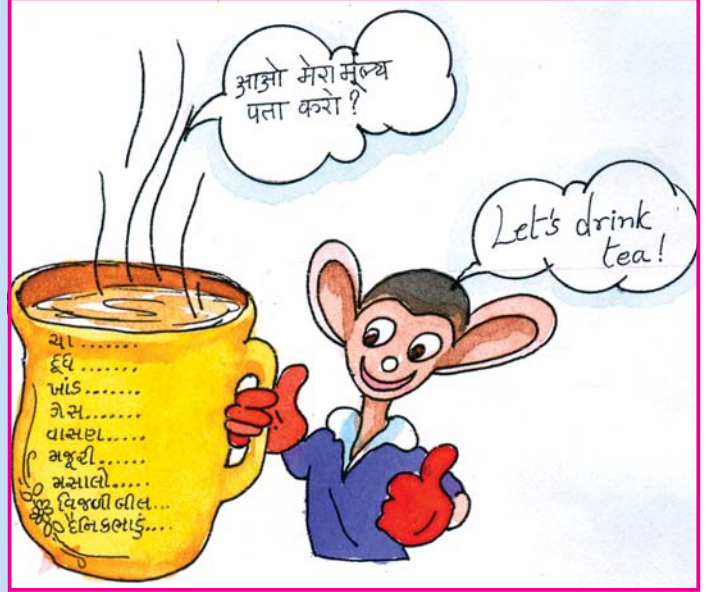 आओ मेरा मूल्य
पता करो ?
Let's drink
tea!
ચા .......
દૂધ .......
ખાંડ .......
ગેસ .......
વાસણ .....
મજૂરી ......
મસાલો .....
વિજળી બીલ ...
દૈનિકભાડું ....